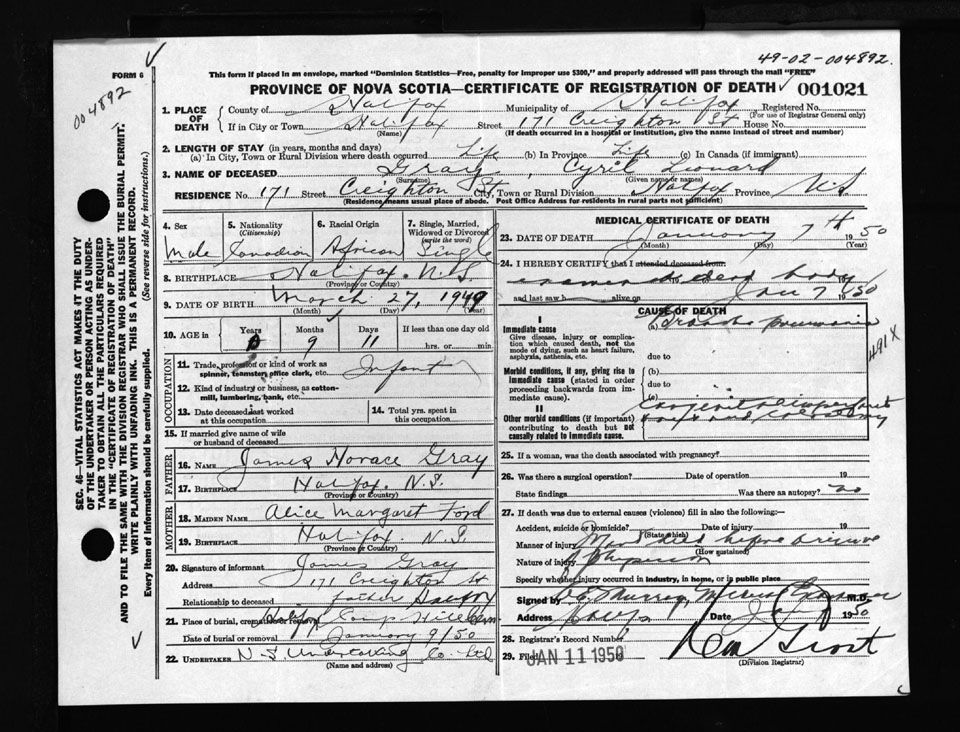 49-02-004892
FORM 6
004892
This form if placed in an envelope, marked "Dominion Statistics—Free, penalty for improper use $300," and properly addressed will pass through the mail "FREE"
PROVINCE OF NOVA SCOTIA—CERTIFICATE OF REGISTRATION OF DEATH 001021
SEC. 46—VITAL STATISTICS ACT MAKES IT THE DUTY
OF THE UNDERTAKER OR PERSON ACTING AS UNDER-
TAKER TO OBTAIN ALL THE PARTICULARS REQUIRED
IN THE "CERTIFICATE OF REGISTRATION OF DEATH"
AND TO FILE THE SAME WITH THE DIVISION REGISTRAR WHO SHALL ISSUE THE BURIAL PERMIT.
WRITE PLAINLY WITH UNFADING INK. THIS IS A PERMANENT RECORD.
Every item of Information should be carefully supplied. (See reverse side for instructions.)
1. PLACE OF DEATH
County of Halifax Municipality of Halifax Registered No.
(For use of Registrar General only)
If in City or Town Halifax Street 171 Creighton St House No.
(Name) (If death occurred in a hospital or institution, give the name instead of street and number)
2. LENGTH OF STAY (in years, months and days)
(a) In City, Town or Rural Division where death occurred Life (b) In Province Life (c) In Canada (if immigrant)
3. NAME OF DECEASED Gray, Cyril Leonard
(Surname) (Given name or names)
RESIDENCE No. 171 Street Creighton St City, Town or Rural Division Halifax Province N.S.
(Residence means usual place of abode. Post Office Address for residents in rural parts not sufficient)
4. Sex Male
5. Nationality (Citizenship) Canadian
6. Racial Origin African
7. Single, Married, Widowed or Divorced (write the word) Single
8. BIRTHPLACE Halifax. N.S.
(Province or Country)
9. DATE OF BIRTH March 27, 1949
(Month) (Day) (Year)
10. AGE in Years 0 Months 9 Days 11 If less than one day old
hrs. or min.
OCCUPATION
11. Trade, profession or kind of work as spinner, teamster, office clerk, etc. Infant
12. Kind of industry or business, as cotton-mill, lumbering, bank, etc.
13. Date deceased last worked at this occupation
14. Total yrs. spent in this occupation
15. If married give name of wife or husband of deceased
FATHER
16. NAME James Horace Gray
17. BIRTHPLACE Halifax. N.S.
(Province or Country)
MOTHER
18. MAIDEN NAME Alice Margaret Ford
19. BIRTHPLACE Halifax. N.S.
(Province or Country)
20. Signature of informant James Gray
Address 171 Creighton St
Relationship to deceased father Halifax
21. Place of burial, cremation or removal Camp Hill Cem
Date of burial or removal January 9/50
22. UNDERTAKER N.S. Undertaking Co. Ltd
(Name and address)
MEDICAL CERTIFICATE OF DEATH
23. DATE OF DEATH January 7th 1950
(Month) (Day) (Year)
24. I HEREBY CERTIFY that I attended deceased from:
examined dead body
and last saw h alive on Jan 7 1950
CAUSE OF DEATH
I
Immediate cause
Give disease, injury or complication which caused death, not the mode of dying, such as heart failure, asphyxia, asthenia, etc.
(a) Broncho pneumonia
491X
due to
Morbid conditions, if any, giving rise to immediate cause (stated in order proceeding backwards from immediate cause).
(b)
due to
(c)
II
Other morbid conditions (if important) contributing to death but not causally related to immediate cause.
25. If a woman, was the death associated with pregnancy?
26. Was there a surgical operation? Date of operation 19
State findings Was there an autopsy? no
27. If death was due to external causes (violence) fill in also the following:
Accident, suicide or homicide? Date of injury 19
(State which)
Manner of injury died before arrival
(How sustained)
Nature of injury of Physician
Specify whether injury occurred in industry, in home, or in public place
Signed by Murray, Medical Examiner M.D.
Address Date 1950
28. Registrar's Record Number
29. Filed JAN 11 1950
(Division Registrar)